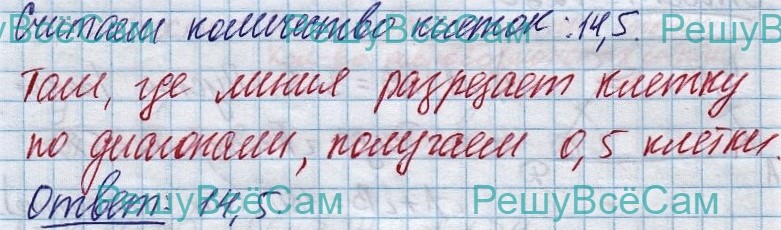 Считаем количество клеток: 14,5.
Там, где линия разрезает клетку
по диагонали, получаем 0,5 клетки
Ответ: 14,5.
РешуВсёСам РешуВсёСам РешуВсёСам
РешуВсёСам РешуВсёСам